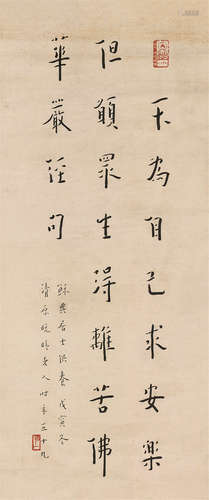 不為自己求安樂
但願眾生得離苦佛
華嚴經句
居士供養戊寅冬
晚晴老人時年五十九